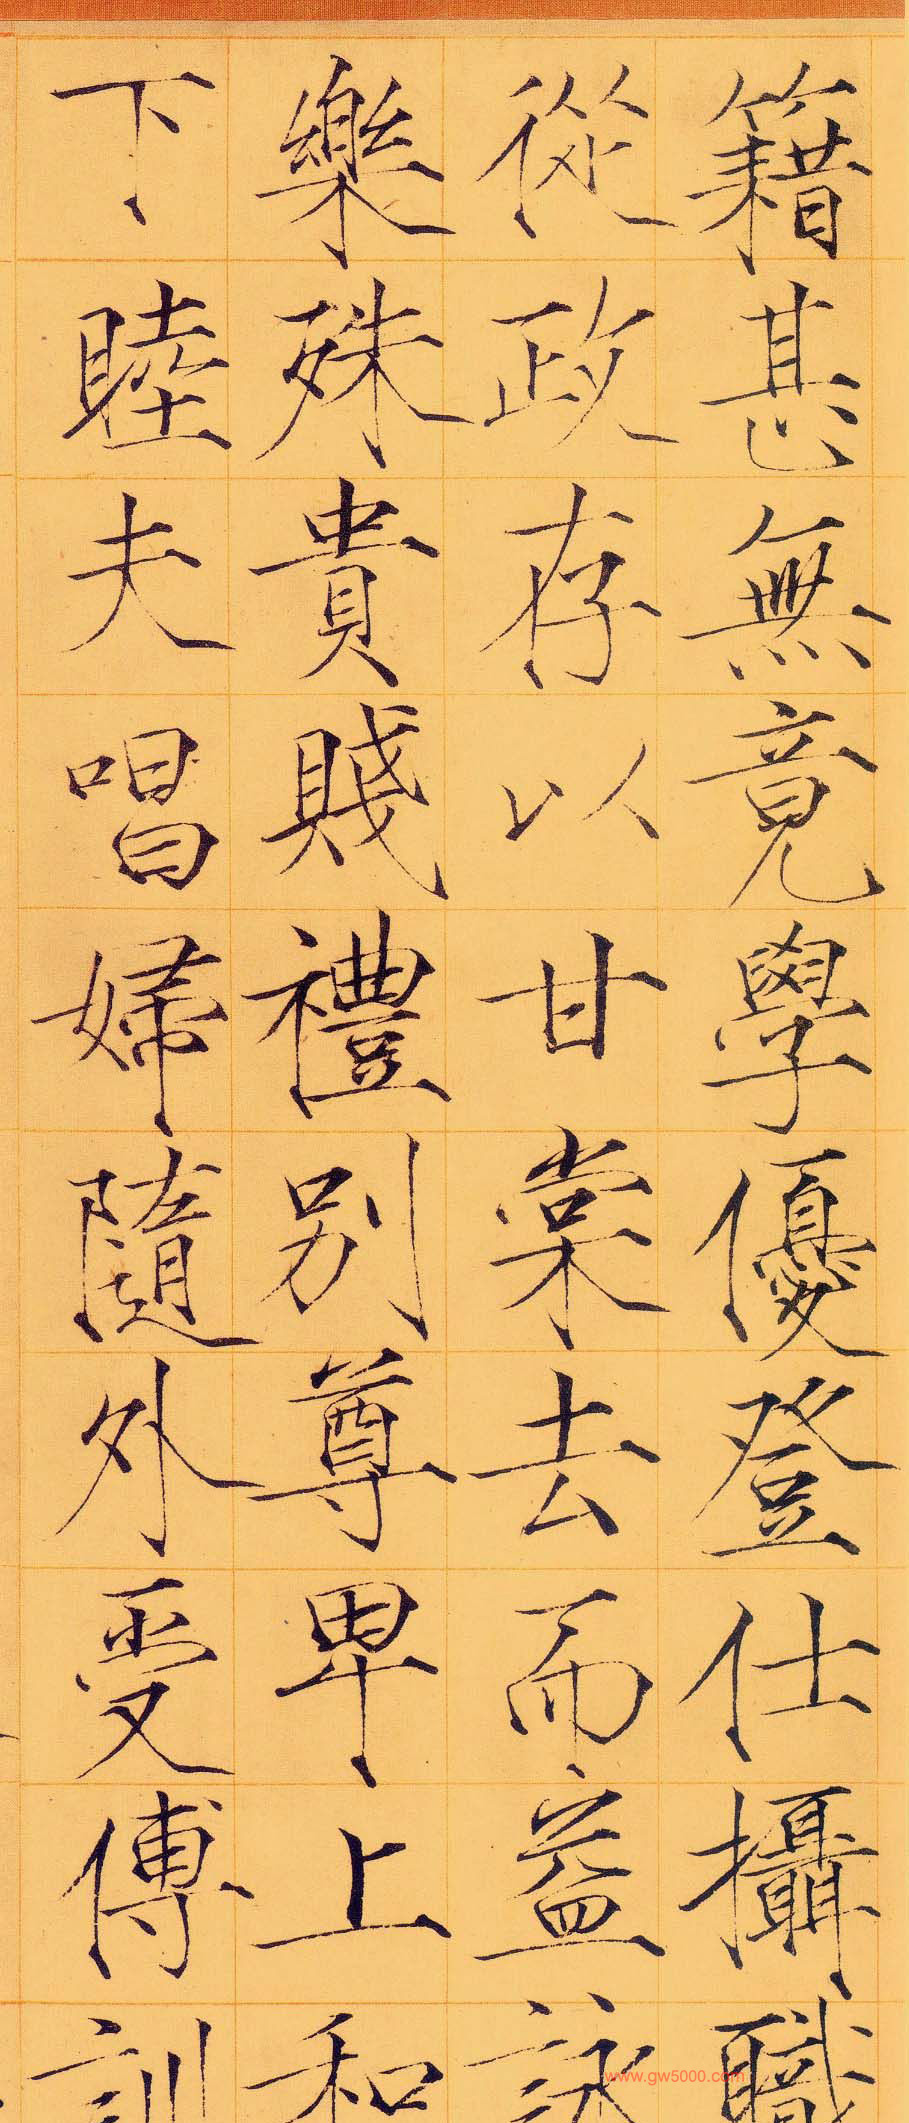 籍甚無竟學優登仕攝職
從政存以甘棠去而益詠
樂殊貴賤禮別尊卑上和
下睦夫唱婦隨外受傅訓
www.gw5000.com